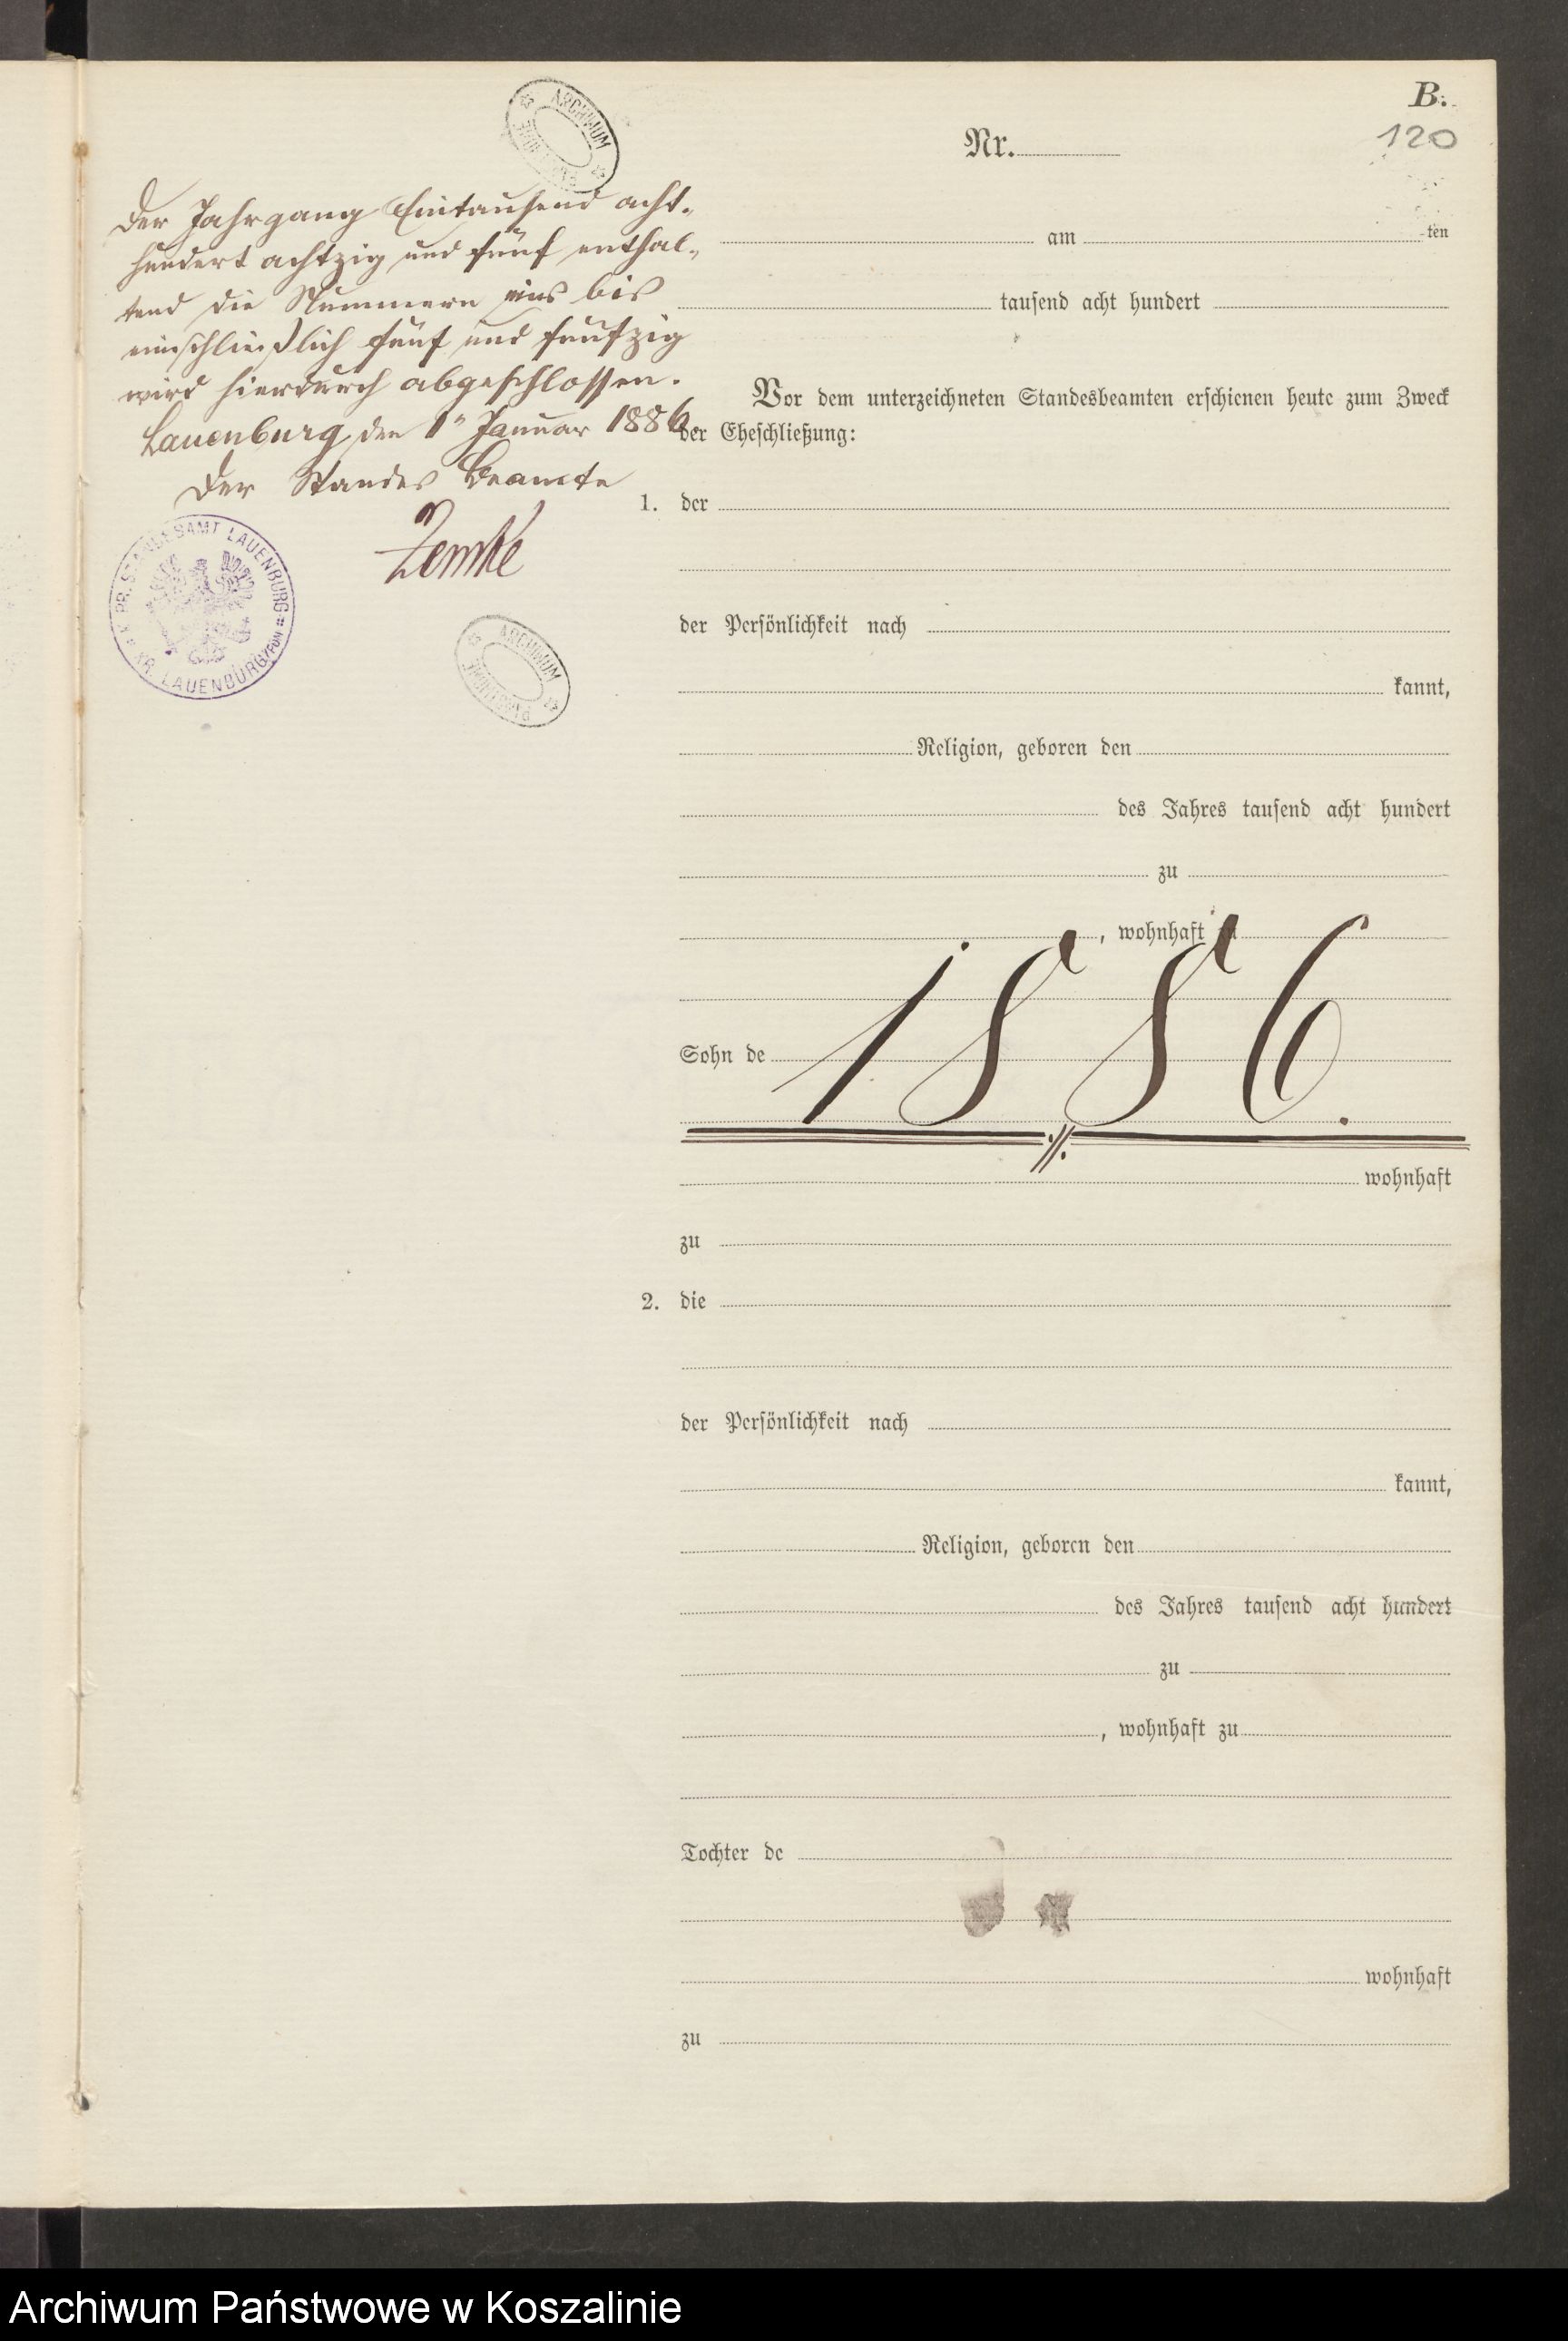 B.
120
Nr.
Der Jahrgang Eintausend acht-
hundert achtzig und fünf enthal-
tend die Nummern eins bis
einschließlich fünf und fünfzig
wird hierdurch abgeschlossen.
Lauenburg den 1n Januar 1886.
Der Standes Beamte
Zemke
K. PR. STANDESAMT LAUENBURG
KR. LAUENBURG/POM
ARCHIWUM
ARCHIWUM
am ten
tausend acht hundert
Vor dem unterzeichneten Standesbeamten erschienen heute zum Zweck
der Eheschließung:
1. der
der Persönlichkeit nach
kannt,
Religion, geboren den
des Jahres tausend acht hundert
zu
, wohnhaft zu
1886.
Sohn de
wohnhaft
zu
2. die
der Persönlichkeit nach
kannt,
Religion, geboren den
des Jahres tausend acht hundert
zu
, wohnhaft zu
Tochter de
wohnhaft
zu
Archiwum Państwowe w Koszalinie